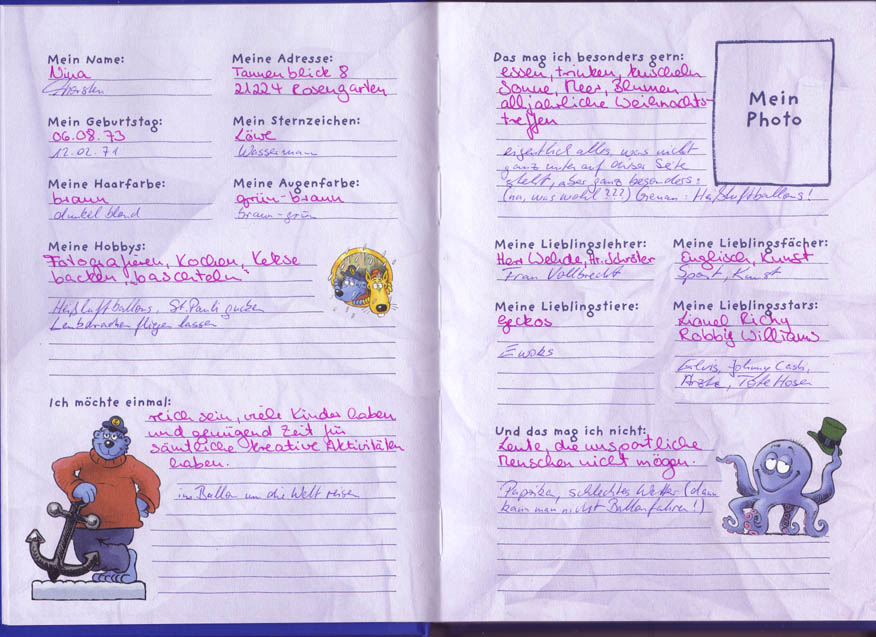 Mein Name:
Nina
Thorsten
Meine Adresse:
Tannenblick 8
21224 Rosengarten
Mein Geburtstag:
06.08.73
12.02.71
Mein Sternzeichen:
Löwe
Wassermann
Meine Haarfarbe:
braun
dunkelblond
Meine Augenfarbe:
grün-braun
braun-grün
Meine Hobbys:
Fotografieren, Kochen, Kekse
backen, "bascheteln"
Heißluftballons, St. Pauli gucken
Lenkdrachen fliegen lassen
Ich möchte einmal:
reich sein, viele Kinder haben
und genügend Zeit für
sämtliche kreative Aktivitäten
haben.
im Ballon um die Welt reisen
Das mag ich besonders gern:
essen, trinken, kuscheln
Sonne, Meer, Blumen
alljährliche Weihnachts-
treffen
eigentlich alles, was nicht
ganz unten auf dieser Seite
steht, aber ganz besonders:
(na, was wohl???) Genau: Heißluftballons!
Mein
Photo
Meine Lieblingslehrer:
Herr Wehde, Hr. Schröter
Frau Vollbrecht
Meine Lieblingsfächer:
Englisch, Kunst
Sport, Kunst
Meine Lieblingstiere:
Geckos
Ewoks
Meine Lieblingsstars:
Lionel Richy
Robby Williams
Elvis, Johnny Cash,
Ärzte, Tote Hosen
Und das mag ich nicht:
Leute, die unsportliche
Menschen nicht mögen.
Paprika, schlechtes Wetter (dann
kann man nicht Ballonfahren!)